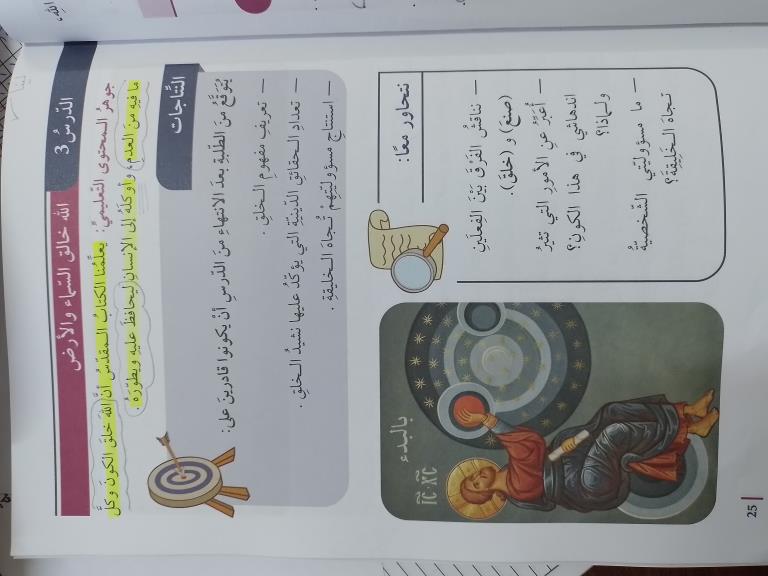 الدّرسُ 3
الله خالق السّماء والأرض
جوهرُ المحتوى التّعليميّ: يعلّمُنا الكتابُ المقدّسُ أنَّ اللهَ خلقَ الكونَ وكلَّ
ما فيه من العدمِ، وأوكلَهُ إلى الإنسانِ ليحافظَ عليه ويطوّرَهُ.
النّتاجات
يُتَوَقَّعُ مِنَ الطّلبةِ بعدَ الانتهاءِ مِنَ الدّرسِ أنْ يكونوا قادرينَ على:
— تعريفِ مفهومِ الخلقِ.
— تعدادِ الحقائقِ الدّينيّة التي يؤكّدُ عليها نشيدُ الخلقِ.
— استنتاجِ مسؤوليّتِهِمْ تُجاهَ الخليقةِ.
نتحاور معًا:
— نناقشُ الفَرْقَ بَيْنَ الفِعلَينِ
(صنعَ) و (خلقَ).
— أُعبّرُ عنِ الأمورِ التي تثيرُ
اندهاشي في هذا الكونِ؟
ولماذا؟
— ما مسؤوليّتي الشّخصيّةُ
تجاهَ الخليقةِ؟
بالبدء
IC XC
25